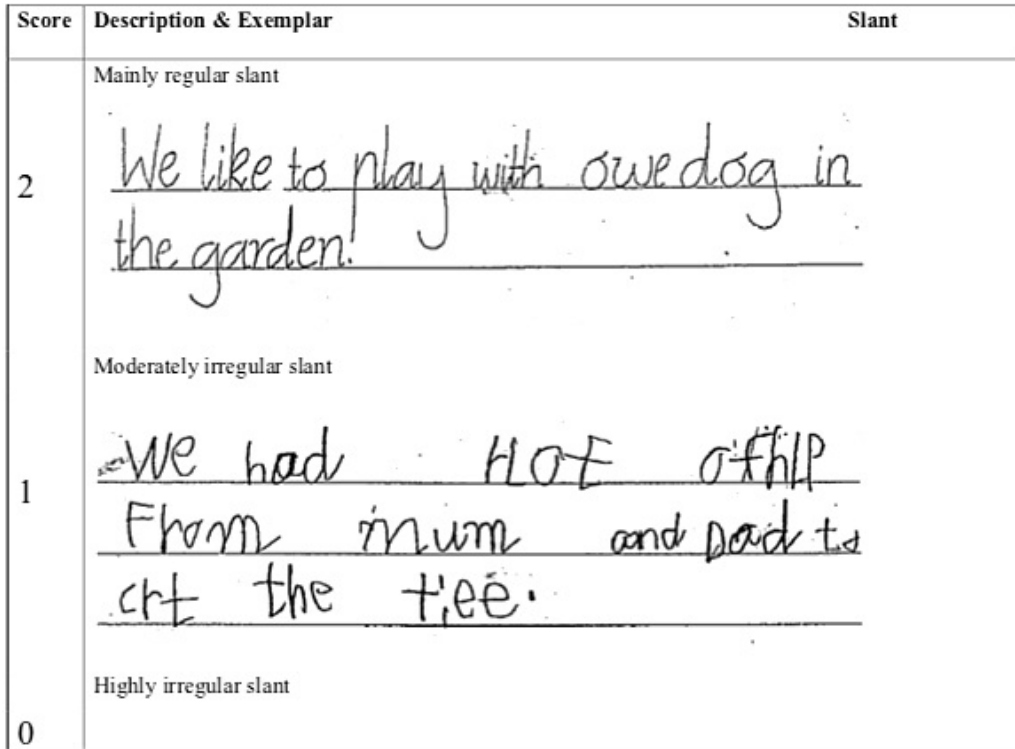 Score Description & Exemplar Slant
Mainly regular slant
2
We like to play with owe dog in
the garden.
Moderately irregular slant
1
We had HOt ofhlP
From mum and Dad to
crt the tree.
Highly irregular slant
0